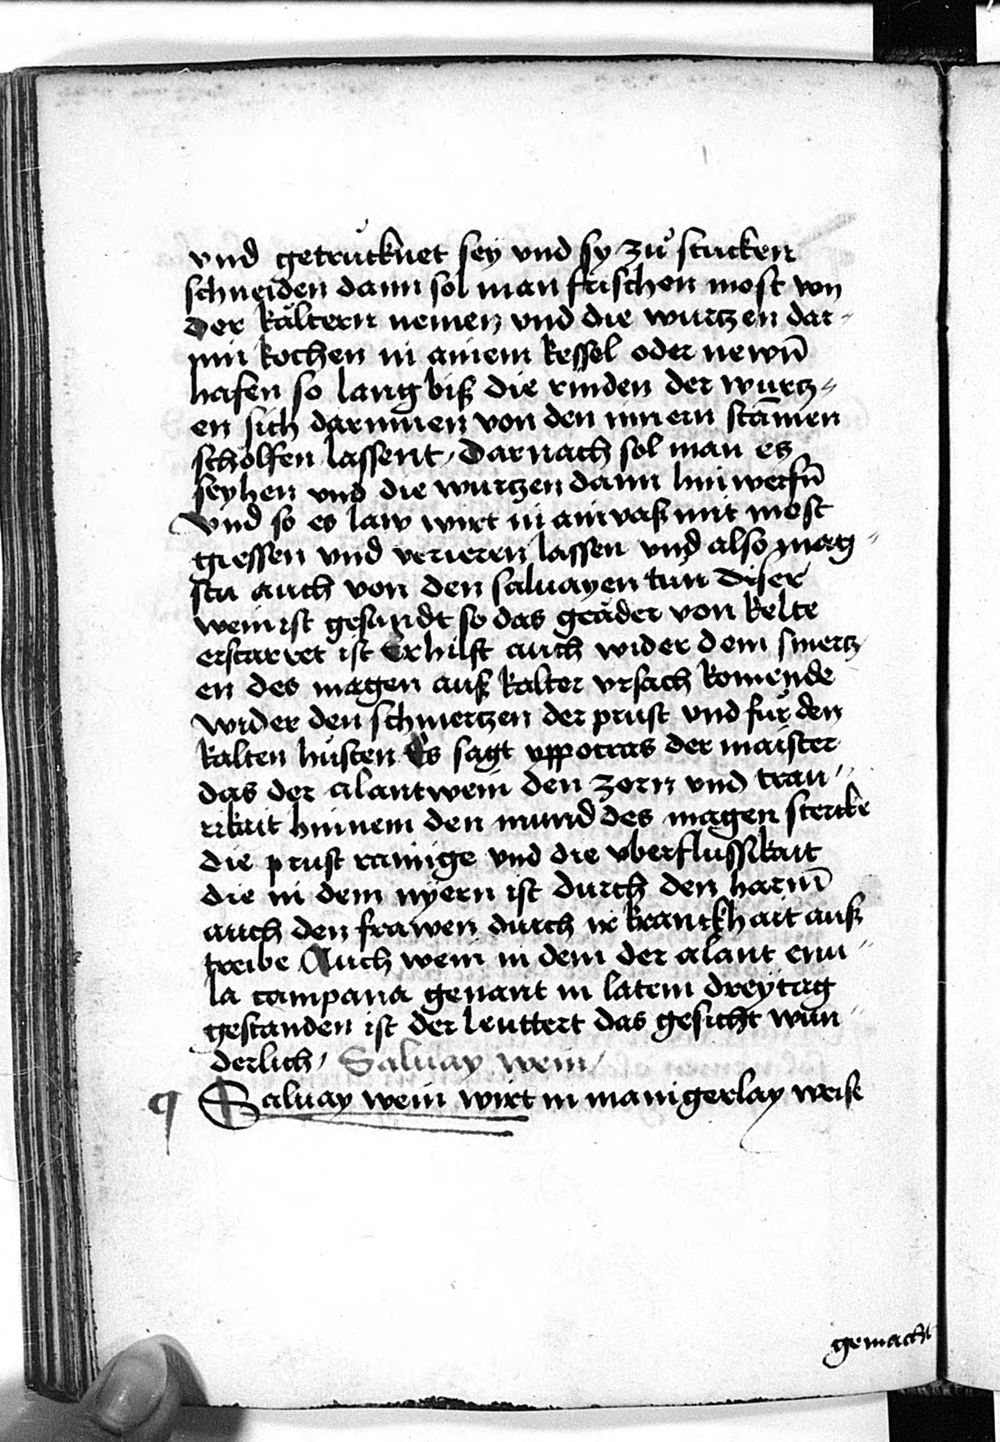 vnd getrücknet sey vnd sy zů stucken
schneiden dann sol man frischen most von
der kältern nemen vnd die wurtzen dar-
inn kochen in ainem kessel oder newn̄
hafen so lang biß die rinden der wurtz-
en sich darinnen von den innern stāmen
schölfen lassent / Darnach sol man es
seyhen vnd die wurtzen dann hin werfn̄
Vnd so es law wirt in ain vaß mit most
giessen vnd verieren lassen vnd also mag-
stu auch von den saluayen tun diser
wein ist gesundt so das geäder von kelte
erstarret ist Er hilft auch wider dem smertz
en des magen auß kalter vrsach komende
wider den schmertzen der prust vnd für den
kalten hůsten Es sagt yppocras der maister
das der alantwein den zorn vnd trau-
rikait hin nem den mund des magen stercke
die prust rainige vnd die vberflussikait
die in dem nyern ist durch den harnn̄
auch den frawen durch ir kranckhait auß
treibe Auch wein in dem der alant enu-
la campana genant in latein drey tag
gestanden ist der leuttert das gesicht wun-
derlich / Saluay wein /
¶ Saluay wein wirt in manigerlay weise
gemacht